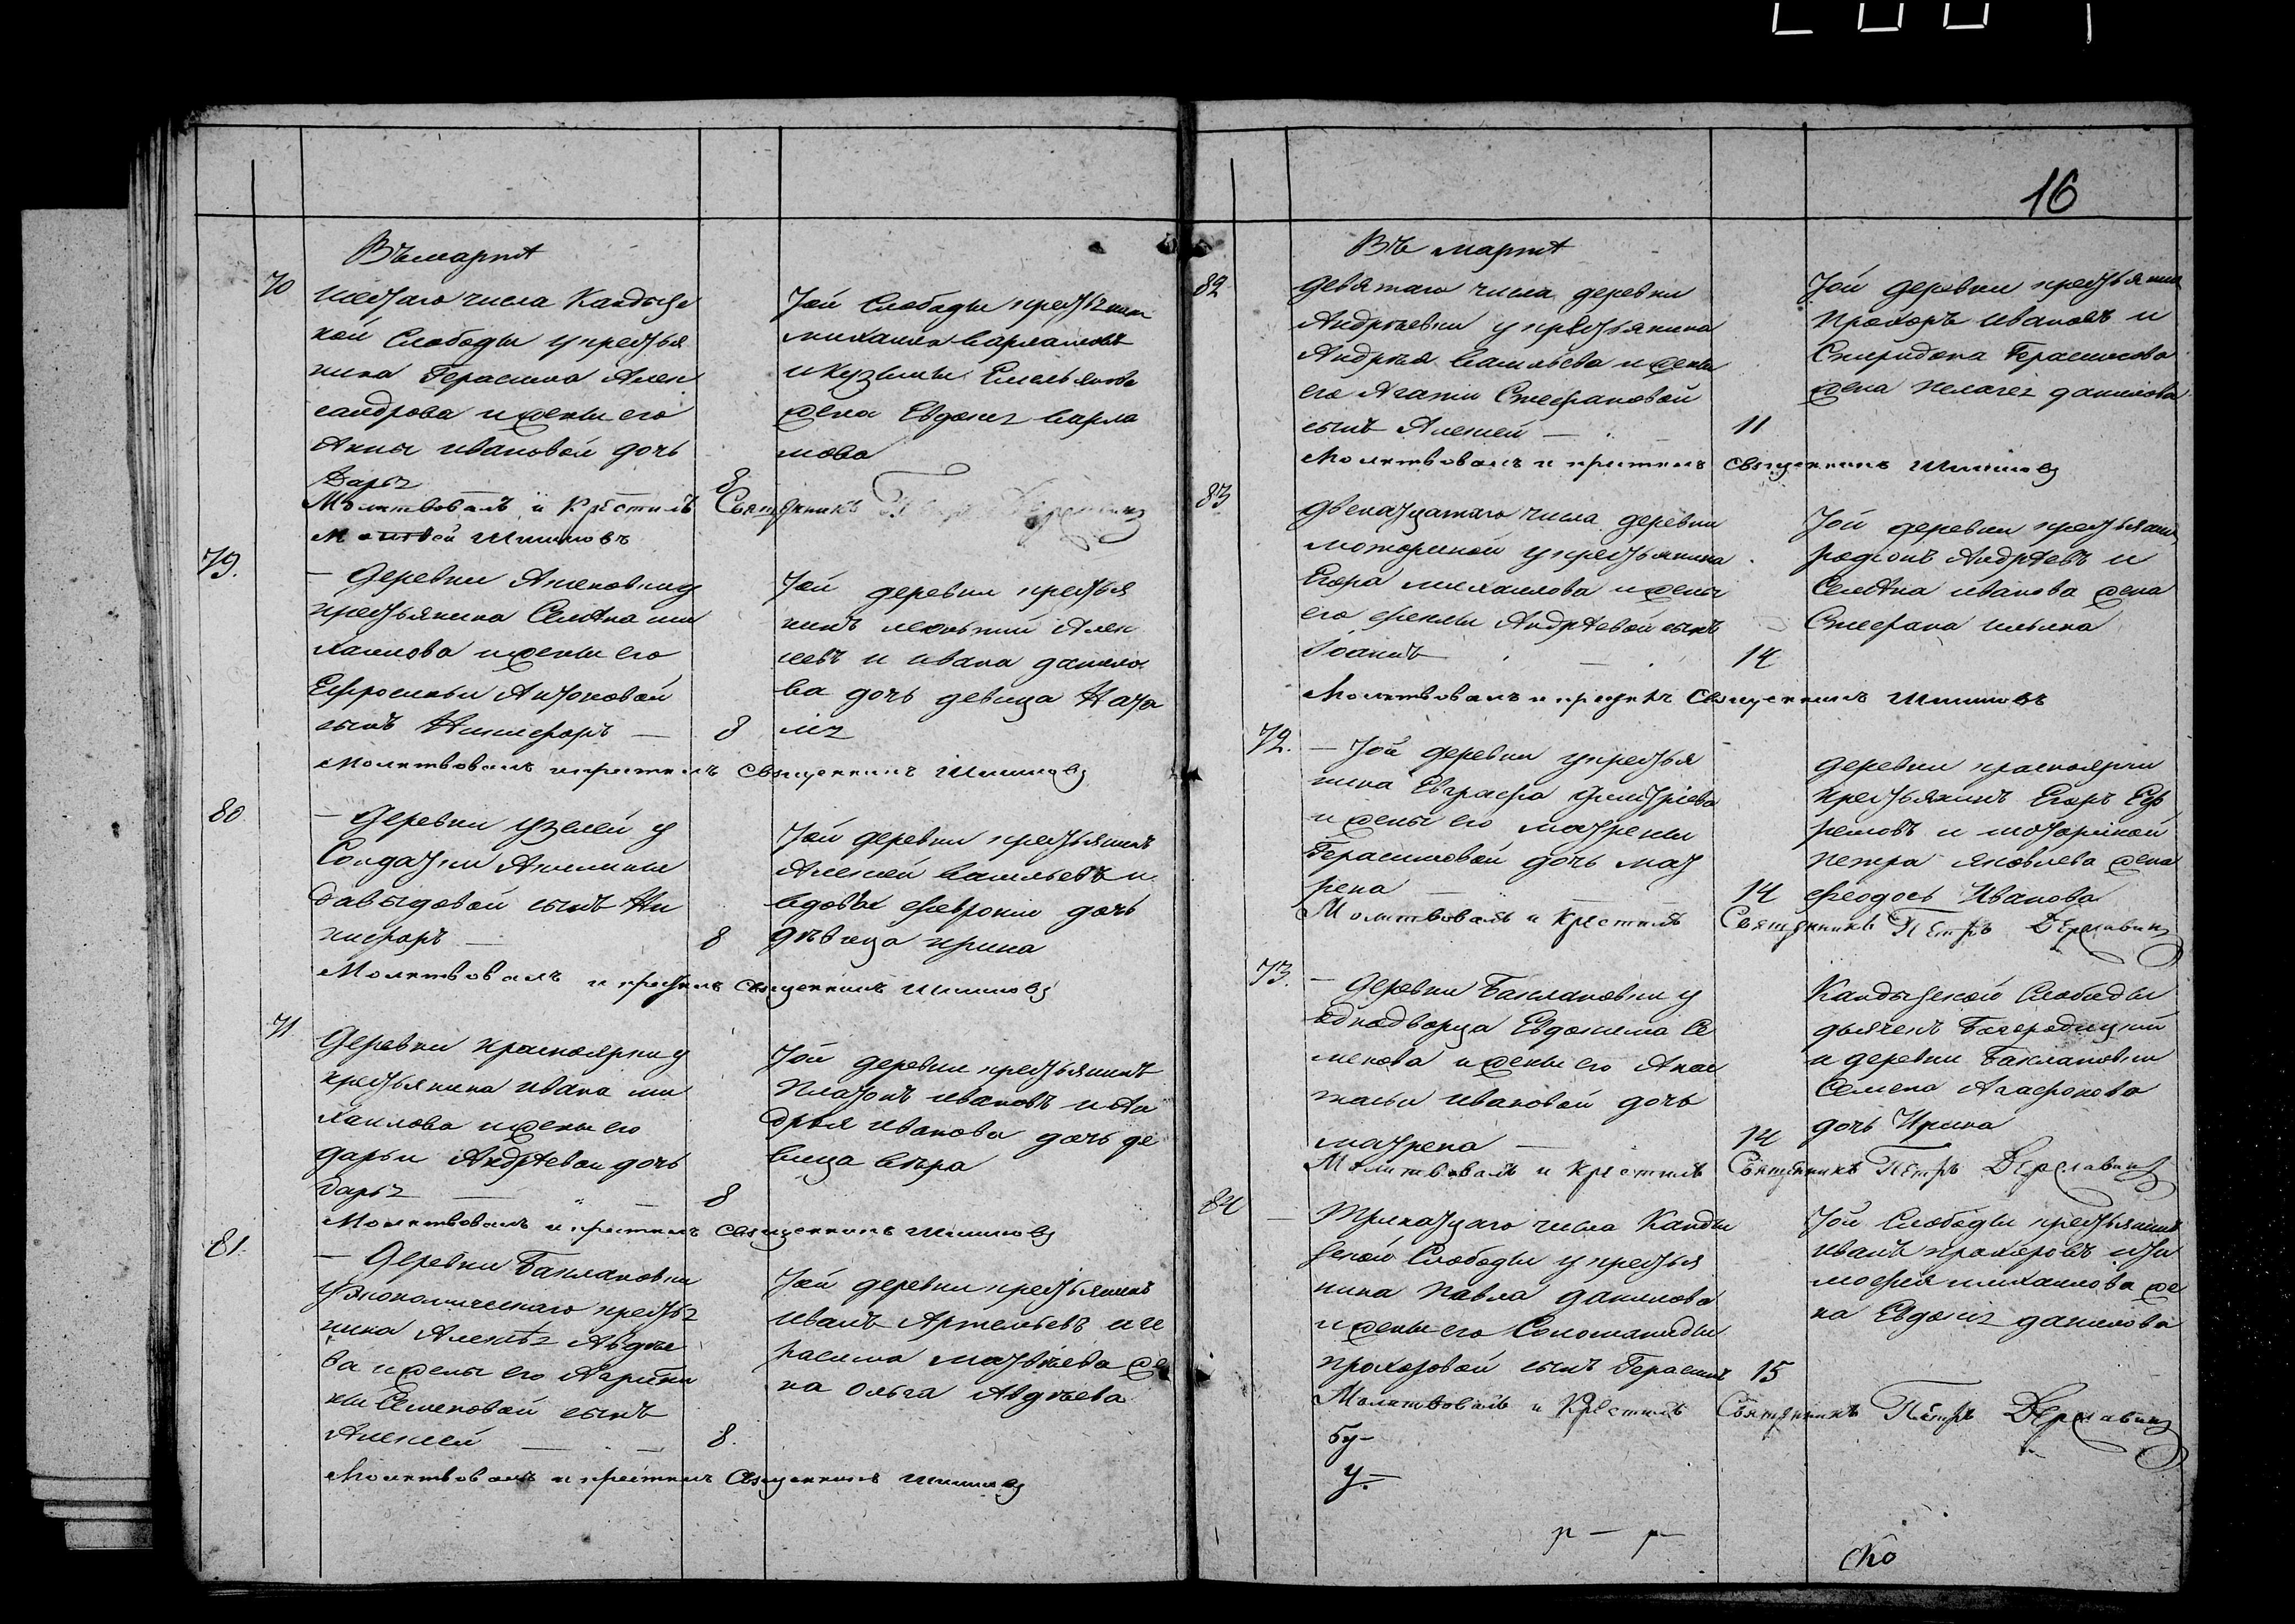 16
Въ мартѣ
70
шестаго числа Кандызс
кой Слободы у крестья
нина Герасима Алек
сандрова и жены его
Анны Ивановой дочь
Дарья
8
той Слободы крестьянинъ
михаилъ варламовъ
и кузьмы Емельянова
жена Евдокия варла
мова
Молитвовалъ и Крестилъ Священникъ
Шишковъ
79.
— деревни
крестьянина Семѣна ми
хаилова и жены его
Ефросиньи Антоновой
сынъ Никифоръ —
8
той деревни крестья
нинъ Алек
сеевъ и ивана данило
ва дочь девица Ната
лия
молитвовалъ и крестилъ священникъ Шишковъ
80
— деревни узелей у
Солдатки Акилины
давыдовой сынъ Ни
кифоръ —
8
той деревни крестьянинъ
Алексей васильевъ и
вдовы февронии дочь
дѣвица ирина
Молитвовалъ и крестилъ священникъ Шишковъ
71.
деревни красноярки у
крестьянина ивана ми
хаилова и жены его
дарьи Андрѣевой дочь
дарья —
8
той деревни крестьянинъ
Платонъ ивановъ и Ан
дрея иванова дочь де
вица вѣра
Молитвовалъ и крестилъ священникъ Шишковъ
81.
— деревни Баклановки
у экономическаго крестья
нина Алексѣя Авдее
ва и жены его Агрипи
ны Семеновой сынъ
Алексей —
8.
той деревни крестьянинъ
иванъ Артемьевъ и ге
расима матвѣева же
на ольга Авдѣева
молитвовалъ и крестилъ священникъ Шишковъ
Въ мартѣ
82
девятаго числа деревни
Андрѣевки у крестьянина
Андрѣя васильева и жены
его Агафьи Стефановой
сынъ Алексей —
11
той деревни крестьянинъ
прохоръ ивановъ и
Спиридона Герасимова
жена пелагея данилова
Молитвовалъ и крестилъ священникъ Шишковъ
83
двенатцатаго числа деревни
моториной у крестьянина
Егора михаилова и жены
его феклы Андрѣевой сынъ
Iоаннъ
14
той деревни крестьянинъ
родiонъ Андрѣевъ и
Семѣна иванова жена
Стефана ильина
Молитвовалъ и крестилъ священникъ Шишковъ
72.
— той деревни у крестья
нина Евграфа дмитрiева
и жены его матрены
Герасимовой дочь мат
рена —
14
деревни красноярки
крестьянинъ Егоръ Еф
ремовъ и моториной
петра яковлева жена
феодосья Иванова
Молитвовалъ и Крестилъ Священникъ Петръ Державинъ
73.
— деревни Баклановки у
однодворца Евдокима Се
менова и жены его Анас
тасьи ивановой дочь
матрена —
14
Кандызской Слободы
дьячекъ Богородицкий
и деревни Баклановки
Семена Агафонова
дочь Ирина
Молитвовалъ и Крестилъ Священникъ Петръ Державинъ
84
— тринатцаго числа Канды
зской Слободы у крестья
нина павла данилова
и жены его Соломаниды
прохоровой сынъ Герасимъ
15
той Слободы крестьянинъ
иванъ прохоровъ и ти
мофея михаилова же
на Евдокия данилова
Молитвовалъ и Крестилъ Священникъ Петръ Державинъ
бу-
у.-
р — р—
Ко